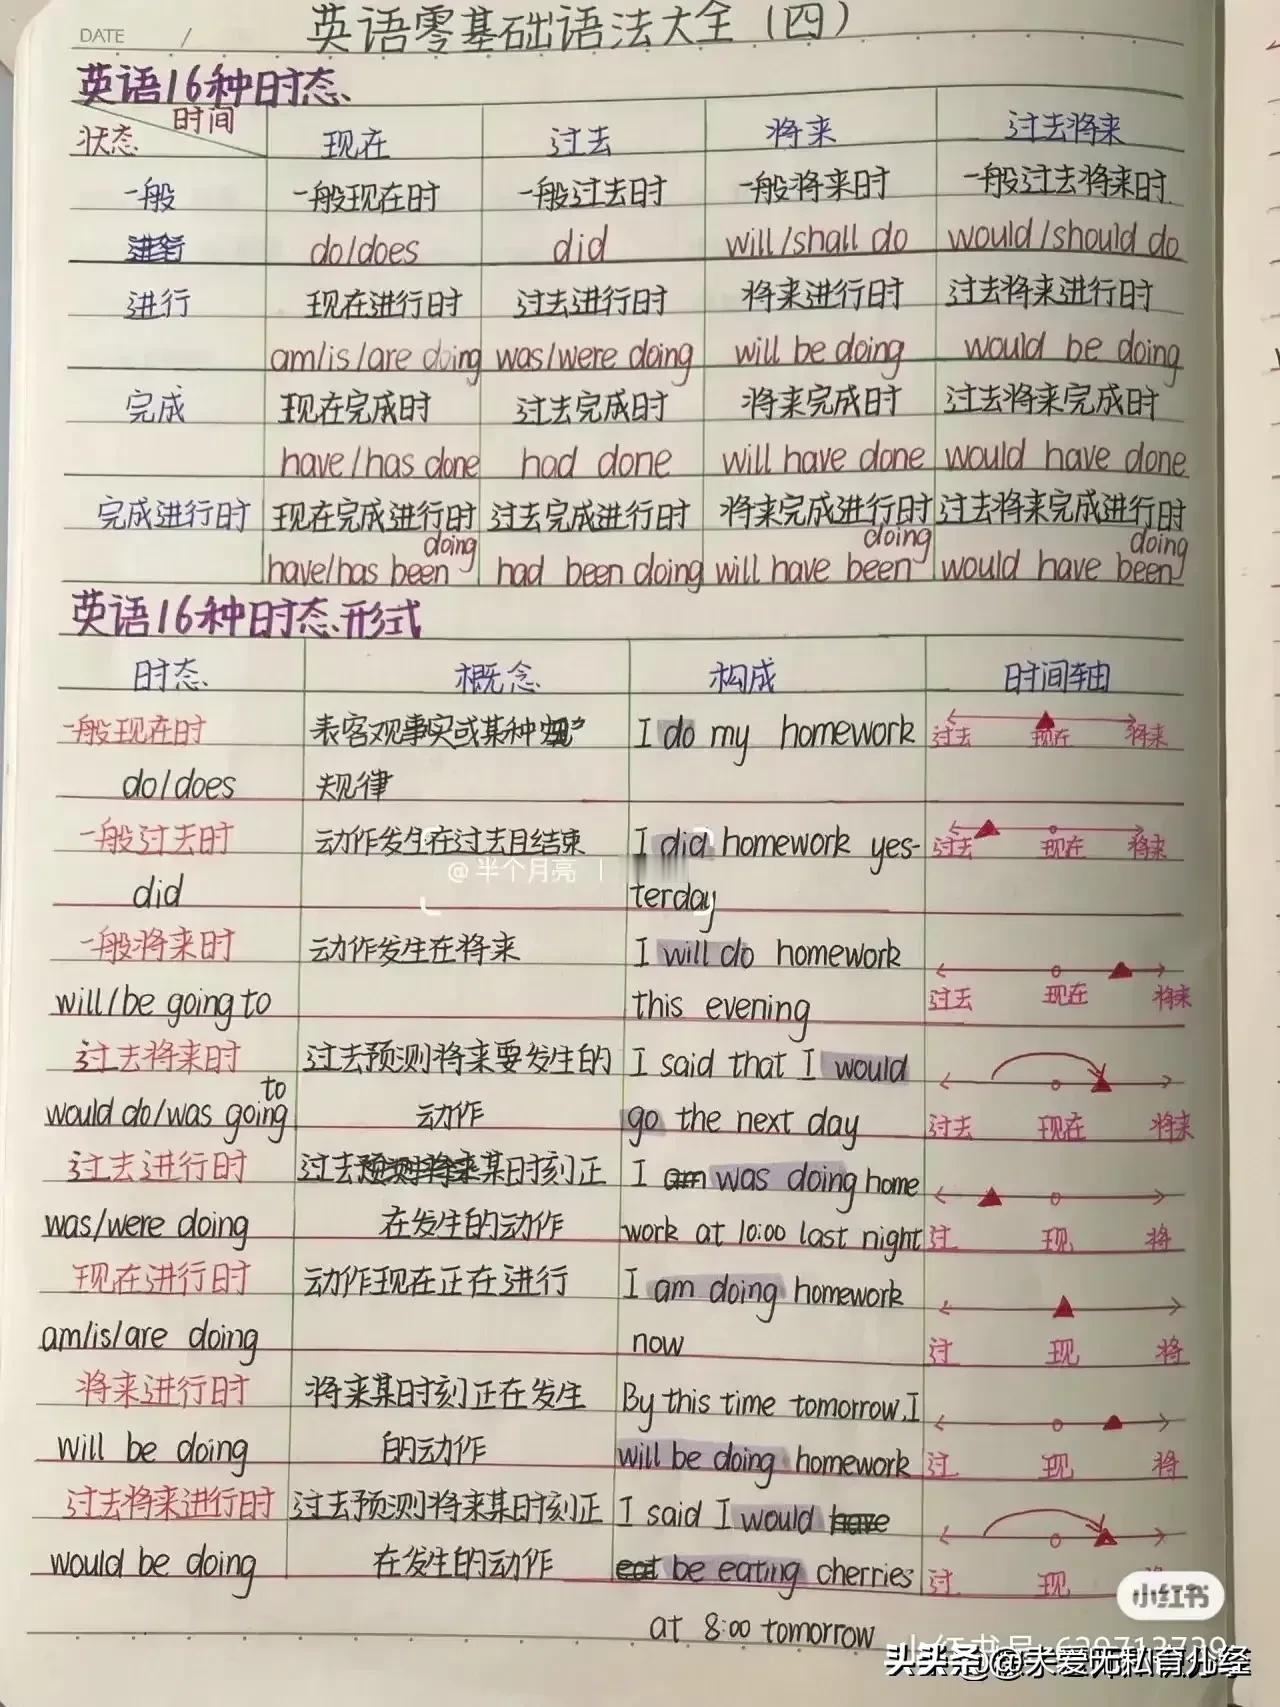 DATE /
英语零基础语法大全（四）
英语16种时态
时间
状态 现在 过去 将来 过去将来
一般 一般现在时 一般过去时 一般将来时 一般过去将来时
do/does did will/shall do would/should do
进行 现在进行时 过去进行时 将来进行时 过去将来进行时
am/is/are doing was/were doing will be doing would be doing
完成 现在完成时 过去完成时 将来完成时 过去将来完成时
have/has done had done will have done would have done
完成进行时 现在完成进行时 过去完成进行时 将来完成进行时 过去将来完成进行时
doing doing doing
have/has been had been doing will have been would have been
英语16种时态形式
时态 概念 构成 时间轴
一般现在时 表客观事实或某种 I do my homework 过去 现在 将来
do/does 规律
一般过去时 动作发生在过去且结束 I did homework yes- 过去 现在 将来
@半个月亮
did terday
一般将来时 动作发生在将来 I will do homework
will/be going to this evening 过去 现在 将来
过去将来时 过去预测将来要发生的 I said that I would
to
would do/was going 动作 go the next day 过去 现在 将来
过去进行时 过去某时刻正 I was doing home
was/were doing 在发生的动作 work at 10:00 last night 过 现 将
现在进行时 动作现在正在进行 I am doing homework
am/is/are doing now 过 现 将
将来进行时 将来某时刻正在发生 By this time tomorrow, I
will be doing 的动作 will be doing homework 过 现 将
过去将来进行时 过去预测将来某时刻正 I said I would
would be doing 在发生的动作 be eating cherries 过 现
小红书
at 8:00 tomorrow